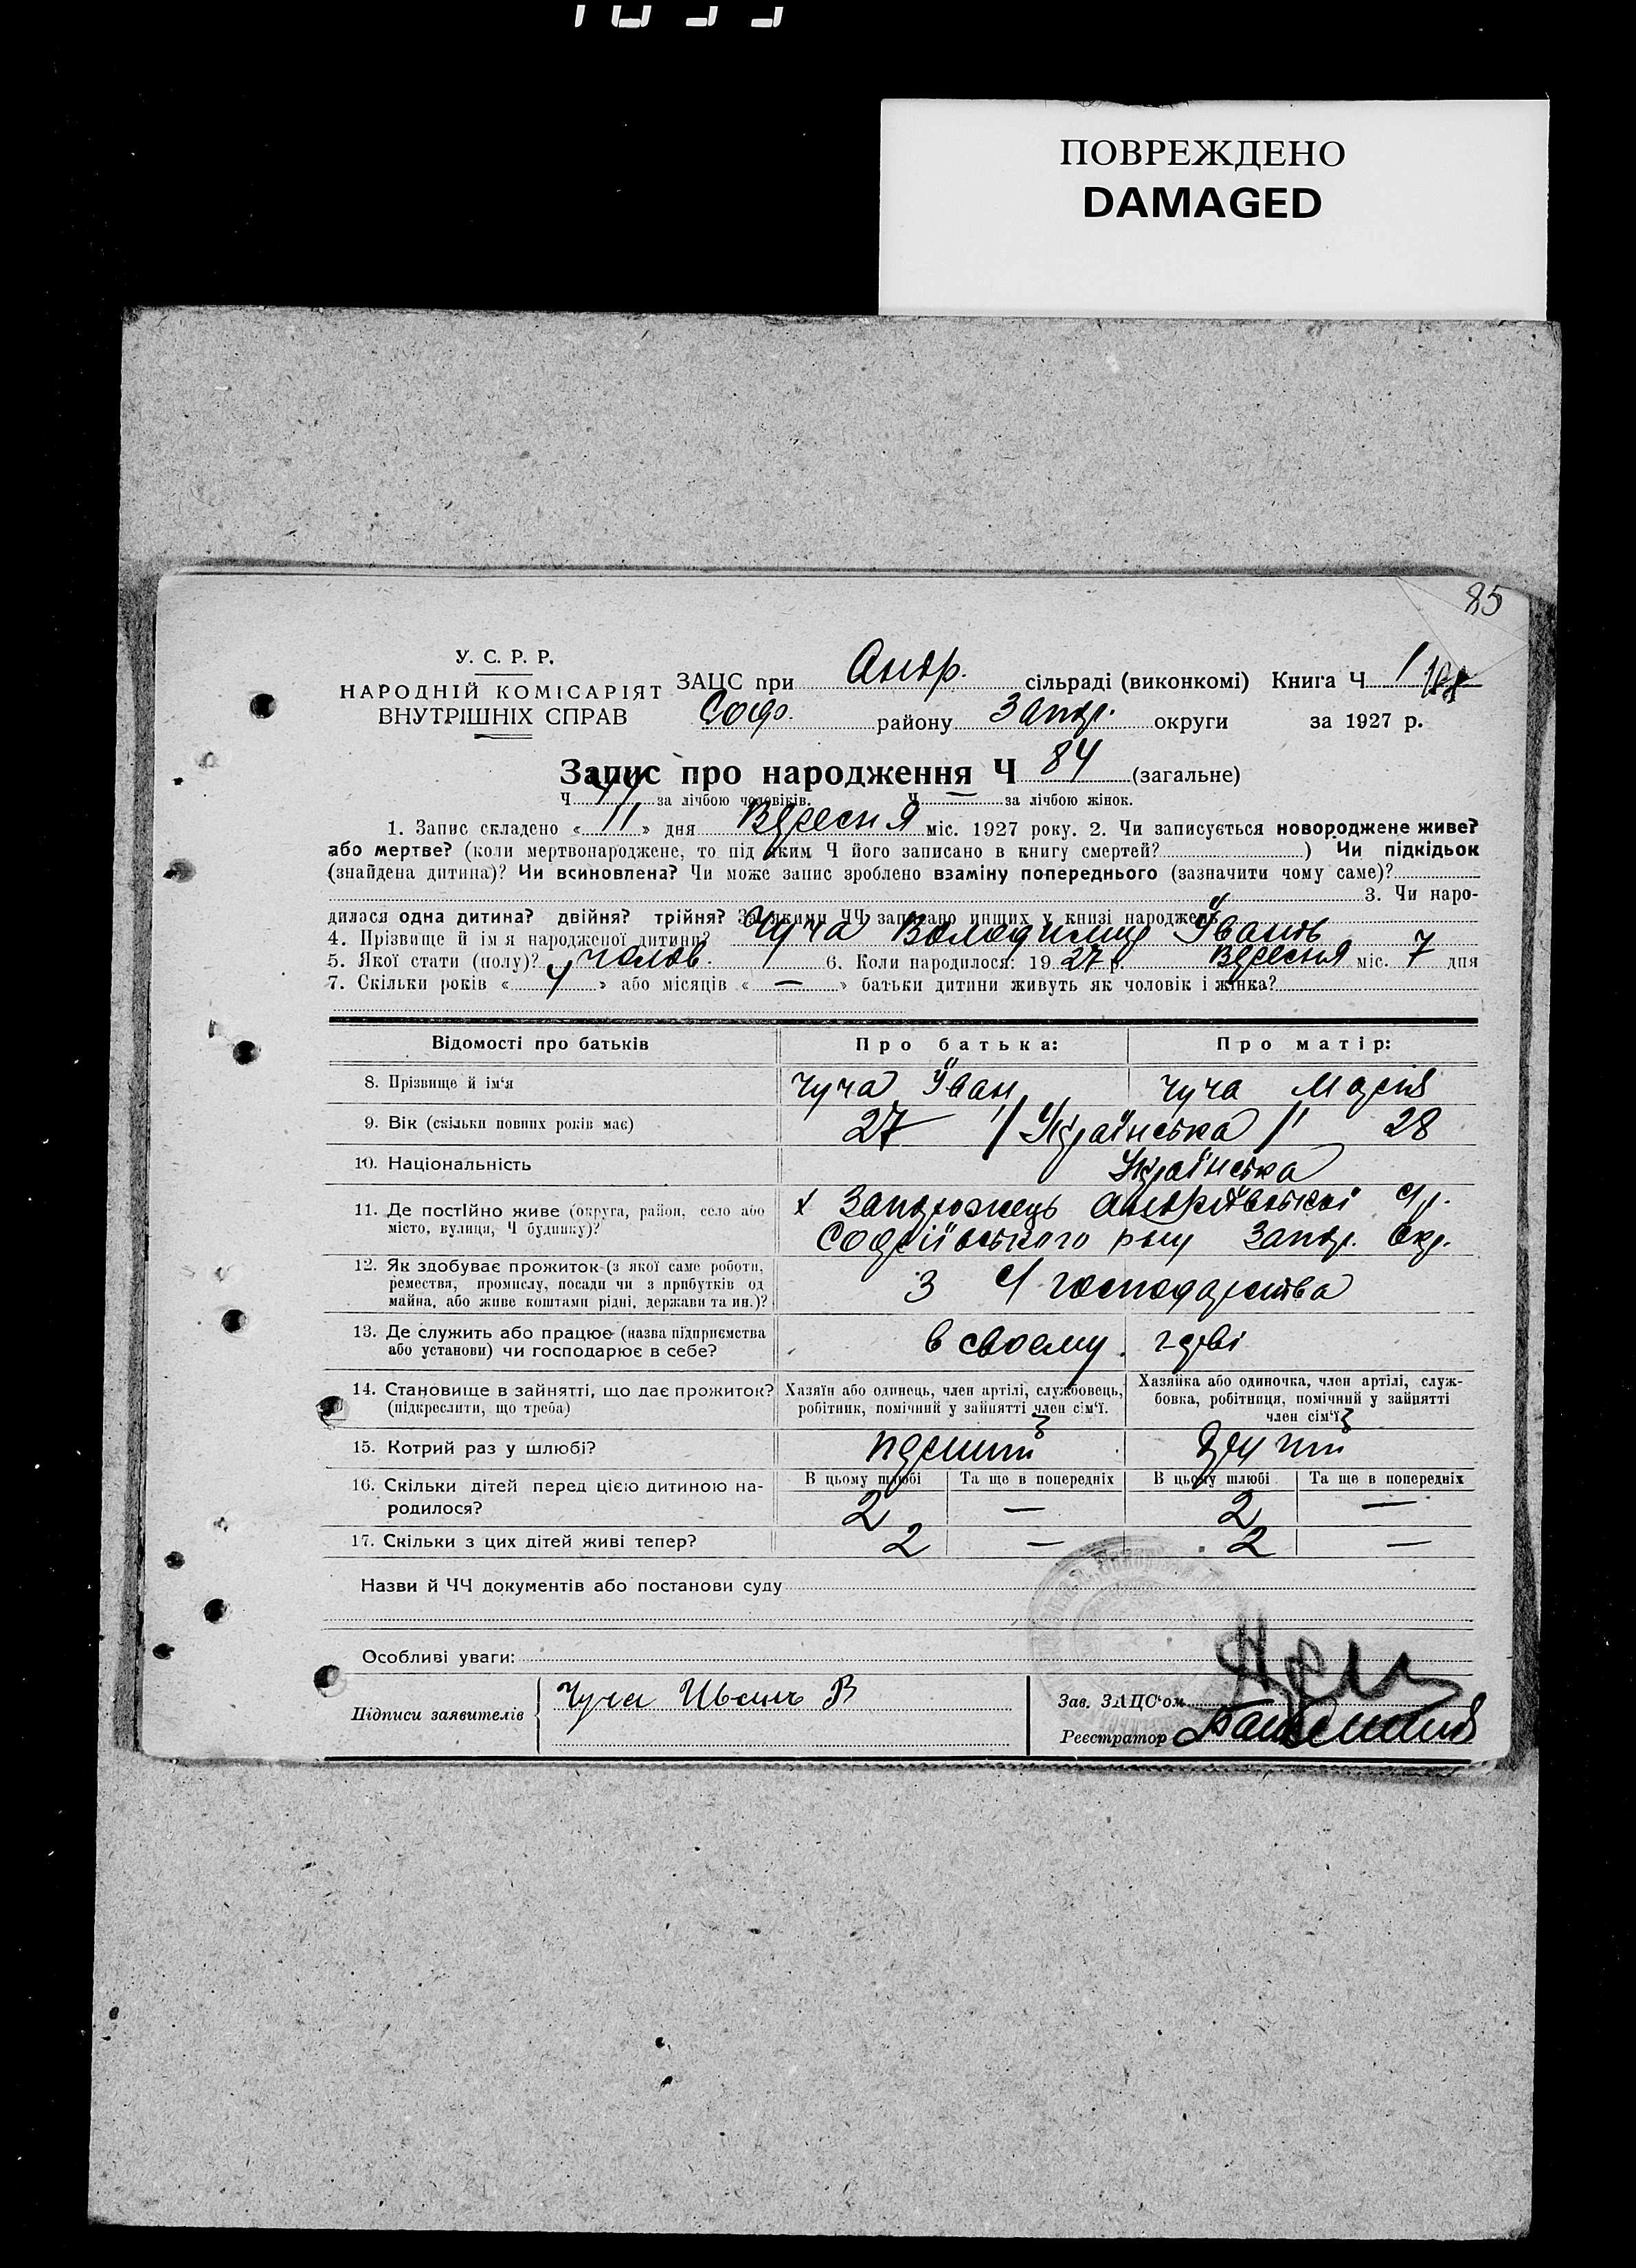 ПОВРЕЖДЕНО
DAMAGED
85
У. С. Р. Р.
НАРОДНІЙ КОМІСАРІЯТ
ВНУТРІШНІХ СПРАВ
ЗАЦС при Андр. сільраді (виконкомі) Книга Ч 1
Софі. району Запор. округи за 1927 р.
Запис про народження Ч 84 (загальне)
Ч 44 за лічбою чоловіків. Ч за лічбою жінок.
1. Запис складено « 11 » дня Вересня міс. 1927 року. 2. Чи записується новороджене живе?
або мертве? (коли мертвонароджене, то під яким Ч його записано в книгу смертей? ) Чи підкідьок
(знайдена дитина)? Чи всиновлена? Чи може запис зроблено взаміну попереднього (зазначити чому саме)?
3. Чи наро-
дилася одна дитина? двійня? трійня? За якими ЧЧ записано инших у книзі народжень
4. Прізвище й ім'я народженої дитини? Чуча Володимир Іванов
5. Якої стати (полу)? чолов. 6. Коли народилося: 19 27 р. Вересня міс. 7 дня
7. Скільки років « 4 » або місяців « — » батьки дитини живуть як чоловік і жінка?
Відомості про батьків Про батька: Про матір:
8. Прізвище й ім'я Чуча Іван Чуча Марія
9. Вік (скільки повних років має) 27 // Українська // 28
10. Національність Українська
11. Де постійно живе (округа, район, село або х Запорожець Андріївської с/р.
місто, вулиця, Ч будинку)? Софіївського р-ну Запор. Окр.
12. Як здобуває прожиток (з якої саме роботи,
ремества, промислу, посади чи з прибутків од З с/господарства
майна, або живе коштами рідні, держави та ин.)?
13. Де служить або працює (назва підприємства в своему г-дрві
або установи) чи господарює в себе?
14. Становище в зайнятті, що дає прожиток? Хазяїн або одинець, член артілі, службовець, Хазяйка або одиночка, член артілі, служ-
(підкреслити, що треба) робітник, помічний у зайнятті член сім'ї. бовка, робітниця, помічний у зайнятті
член сім'ї
15. Котрий раз у шлюбі? перший другий
16. Скільки дітей перед цією дитиною на- В цьому шлюбі Та ще в попередніх В цьому шлюбі Та ще в попередніх
родилося? 2 — 2 —
17. Скільки з цих дітей живі тепер? 2 — 2 —
Назви й ЧЧ документів або постанови суду
Особливі уваги:
Підписи заявителів Чуча Иванъ В
Зав. ЗАЦС'ом
Реєстратор